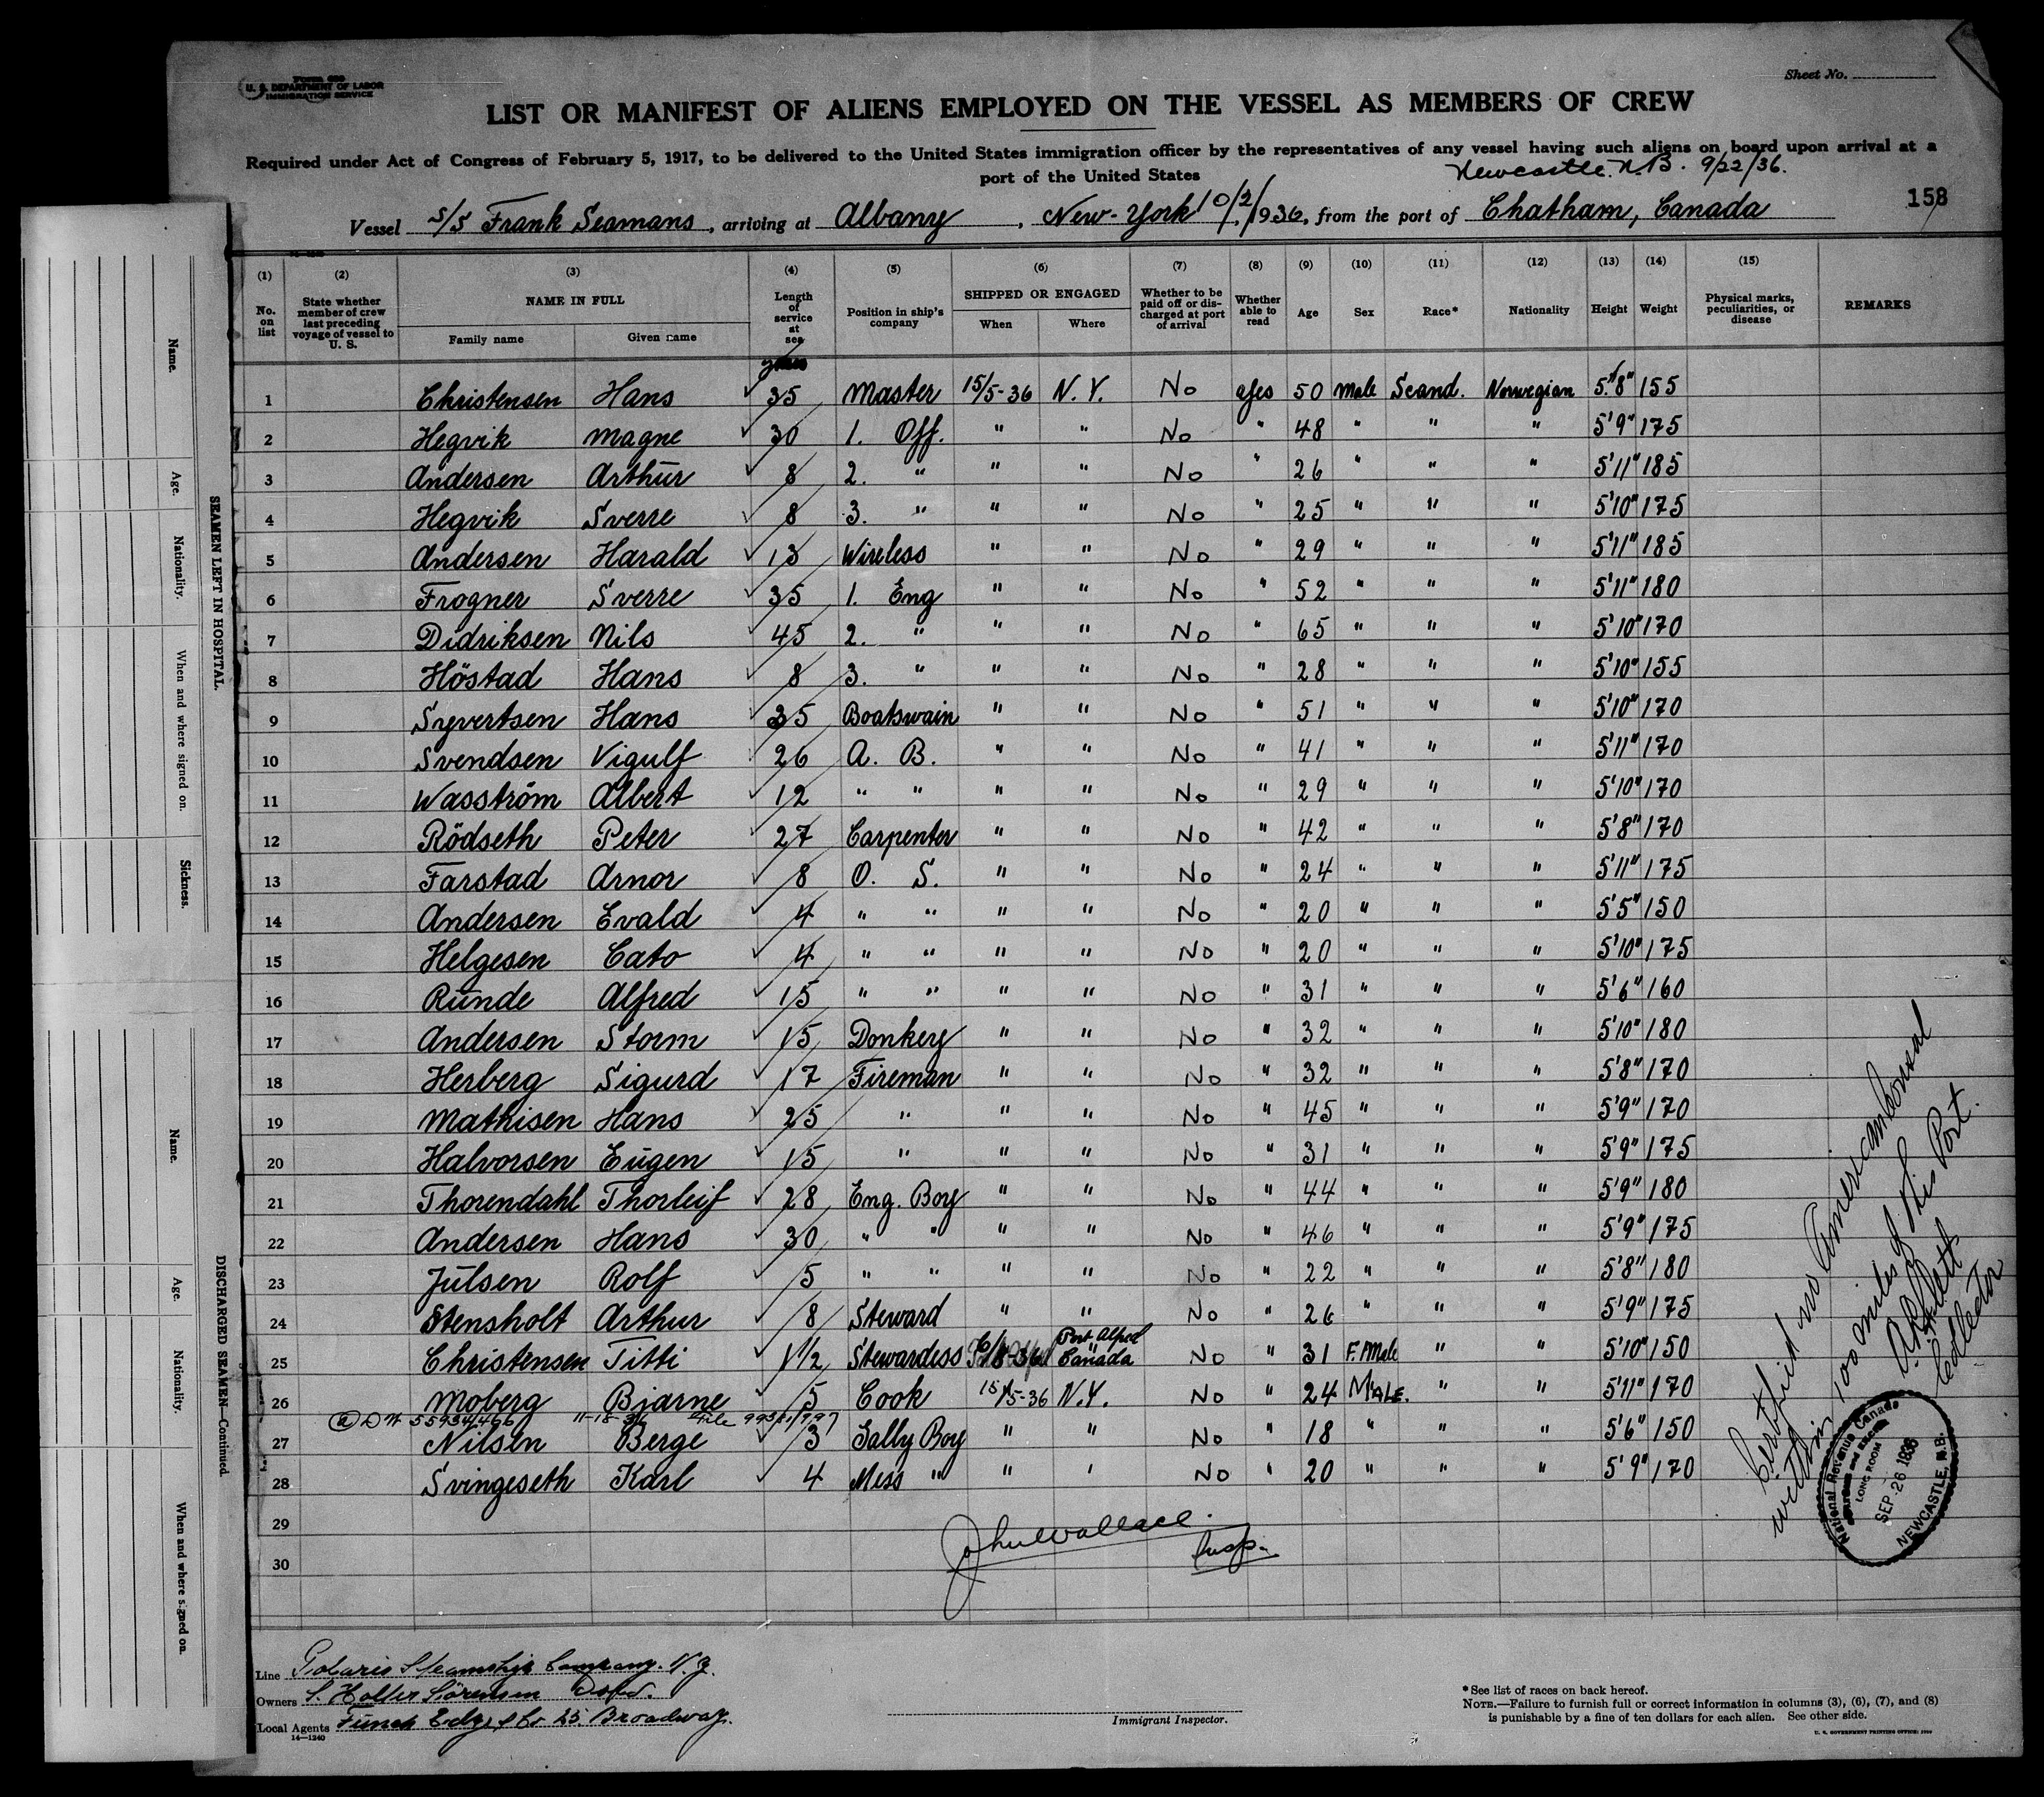 Form 680
U. S. DEPARTMENT OF LABOR
IMMIGRATION SERVICE
Sheet No.
LIST OR MANIFEST OF ALIENS EMPLOYED ON THE VESSEL AS MEMBERS OF CREW
Required under Act of Congress of February 5, 1917, to be delivered to the United States immigration officer by the representatives of any vessel having such aliens on board upon arrival at a
port of the United States
Newcastle. N.B. 9/22/36.
158
Vessel S/S Frank Seamans, arriving at Albany, New-York 10/2/1936, from the port of Chatham, Canada
(1) (2) (3) (4) (5) (6) (7) (8) (9) (10) (11) (12) (13) (14) (15)
No. on list | State whether member of crew last preceding voyage of vessel to U. S. | NAME IN FULL | Family name | Given name | Length of service at sea | Position in ship's company | SHIPPED OR ENGAGED | When | Where | Whether to be paid off or discharged at port of arrival | Whether able to read | Age | Sex | Race* | Nationality | Height | Weight | Physical marks, peculiarities, or disease | REMARKS
years
1 Christensen Hans 35 Master 15/5-36 N.Y. No Yes 50 Male Scand. Norwegian 5'8" 155
2 Hegvik Magne 30 1. Off. " " No " 48 " " " 5'9" 175
3 Andersen Arthur 8 2. " " " No " 26 " " " 5'11" 185
4 Hegvik Sverre 8 3. " " " No " 25 " " " 5'10" 175
5 Andersen Harald 13 Wireless " " No " 29 " " " 5'11" 185
6 Frogner Sverre 35 1. Eng " " No " 52 " " " 5'11" 180
7 Didriksen Nils 45 2. " " " No " 65 " " " 5'10" 170
8 Höstad Hans 8 3. " " " No " 28 " " " 5'10" 155
9 Syvertsen Hans 35 Boatswain " " No " 51 " " " 5'10" 170
10 Svendsen Vigulf 26 A. B. " " No " 41 " " " 5'11" 170
11 Wasström Albert 12 " " " " No " 29 " " " 5'10" 170
12 Rödseth Peter 27 Carpenter " " No " 42 " " " 5'8" 170
13 Farstad Arnor 8 O. S. " " No " 24 " " " 5'11" 175
14 Andersen Evald 4 " " " " No " 20 " " " 5'5" 150
15 Helgesen Cato 4 " " " " No " 20 " " " 5'10" 175
16 Runde Alfred 15 " " " " No " 31 " " " 5'6" 160
17 Andersen Storm 15 Donkey " " No " 32 " " " 5'10" 180
18 Herberg Sigurd 17 Fireman " " No " 32 " " " 5'8" 170
19 Mathisen Hans 25 " " " No " 45 " " " 5'9" 170
20 Halvorsen Eugen 15 " " " No " 31 " " " 5'9" 175
21 Thorendahl Thorleif 28 Eng. Boy " " No " 44 " " " 5'9" 180
22 Andersen Hans 30 " " " " No " 46 " " " 5'9" 175
23 Julsen Rolf 5 " " " " No " 22 " " " 5'8" 180
24 Stensholt Arthur 8 Steward " " No " 26 " " " 5'9" 175
25 Christensen Titti 1 1/2 Stewardess 6/8-36 Port Alfred Canada No " 31 F.Male " " 5'10" 150
26 Moberg Bjarne 5 Cook 15/5-36 N.Y. No " 24 MALE. " " 5'11" 170
55934/466 11-18-36 File
27 Nilsen Berge 3 Gally Boy " " No " 18 " " " 5'6" 150
28 Svingeseth Karl 4 Mess " " ' No " 20 " " " 5'9" 170
29
30
John Wallace.
Insp.
Certified no American Consul
within 100 miles of this Port.
Collector
National Revenue Canada
LONG ROOM
SEP 26 1936
NEWCASTLE, N.B.
Line Polaris Steamship Company. N.Y.
Owners S. Holter Sörensen Oslo.
Local Agents Funch Edye & Co 25. Broadway.
14—1240
Immigrant Inspector.
*See list of races on back hereof.
NOTE.—Failure to furnish full or correct information in columns (3), (6), (7), and (8)
is punishable by a fine of ten dollars for each alien. See other side.
U. S. GOVERNMENT PRINTING OFFICE
SEAMEN LEFT IN HOSPITAL.
Name.
Age.
Nationality.
When and where signed on.
Sickness.
DISCHARGED SEAMEN—Continued.
Name.
Age.
Nationality.
When and where signed on.